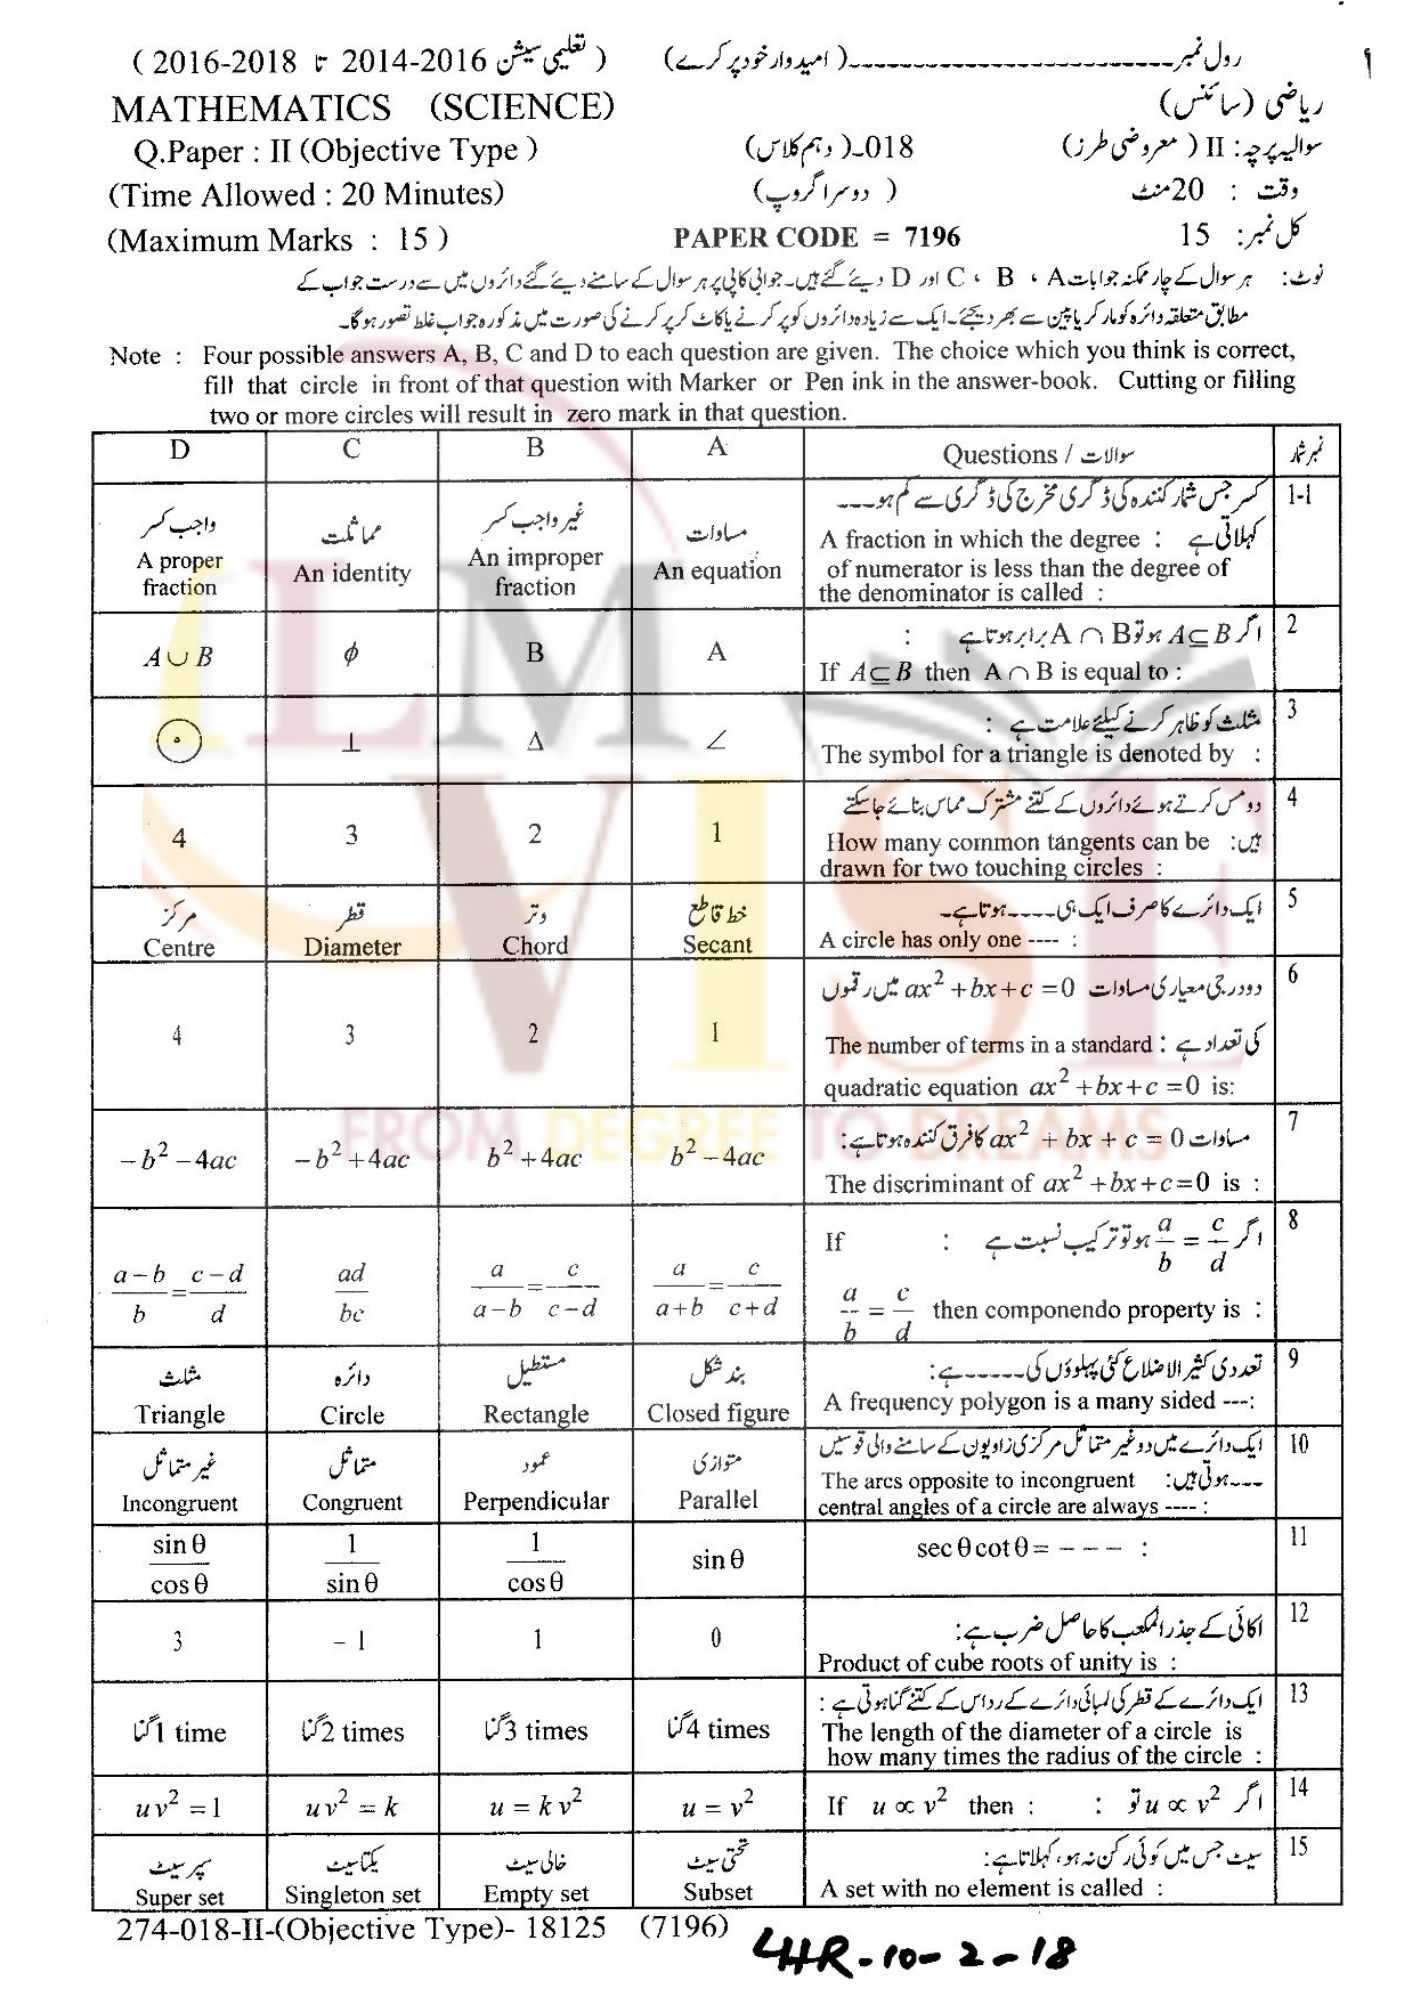 رول نمبر ـــــــــــــــــــ (امیدوار خود پر کرے) ( تعلیمی سیشن 2014-2016 تا 2016-2018 )
ریاضی (سائنس) MATHEMATICS (SCIENCE)
سوالیہ پرچہ : II ( معروضی طرز ) 018ـ( دہم کلاس) Q.Paper : II (Objective Type )
وقت : 20 منٹ ( دوسرا گروپ ) (Time Allowed : 20 Minutes)
کل نمبر: 15 PAPER CODE = 7196 (Maximum Marks : 15 )
نوٹ: ہر سوال کے چار ممکنہ جوابات A ، B ، C اور D دیئے گئے ہیں۔ جوابی کاپی پر ہر سوال کے سامنے دیئے گئے دائروں میں سے درست جواب کے
مطابق متعلقہ دائرہ کو مارکر یا پین سے بھر دیجئے۔ ایک سے زیادہ دائروں کو پر کرنے یا کاٹ کر پر کرنے کی صورت میں مذکورہ جواب غلط تصور ہوگا۔
Note : Four possible answers A, B, C and D to each question are given. The choice which you think is correct,
fill that circle in front of that question with Marker or Pen ink in the answer-book. Cutting or filling
two or more circles will result in zero mark in that question.
D C B A Questions / سوالات نمبر شمار
1-1 کسر جس شمار کنندہ کی ڈگری مخرج کی ڈگری سے کم ہو ۔۔۔۔
کہلاتی ہے : A fraction in which the degree
of numerator is less than the degree of
the denominator is called :
واجب کسر مماثلت غیر واجب کسر مساوات
A proper fraction An identity An improper fraction An equation
2 اگر A⊆B ہو تو A ∩ B برابر ہوتا ہے :
If A⊆B then A ∩ B is equal to :
A ∪ B ϕ B A
3 مثلث کو ظاہر کرنے کیلئے علامت ہے :
The symbol for a triangle is denoted by :
⊙ ⊥ Δ ∠
4 دو مس کرتے ہوئے دائروں کے کتنے مشترک مماس بنائے جاسکتے
ہیں: How many common tangents can be
drawn for two touching circles :
4 3 2 1
5 ایک دائرے کا صرف ایک ہی ۔۔۔۔۔ ہوتا ہے۔
A circle has only one ---- :
مرکز قطر وتر خط قاطع
Centre Diameter Chord Secant
6 دو درجی معیاری مساوات ax² +bx+c =0 میں رقموں
کی تعداد ہے : The number of terms in a standard
quadratic equation ax² +bx+c =0 is:
4 3 2 1
7 مساوات ax² + bx + c = 0 کا فرق کنندہ ہوتا ہے:
The discriminant of ax² +bx+c=0 is :
−b² −4ac −b² +4ac b² +4ac b² −4ac
8 اگر a/b = c/d ہو تو ترکیب نسبت ہے : If
a/b = c/d then componendo property is :
(a−b)/b = (c−d)/d ad/bc a/(a−b) = c/(c−d) a/(a+b) = c/(c+d)
9 تعددی کثیر الاضلاع کئی پہلوؤں کی ۔۔۔۔۔۔ ہے:
A frequency polygon is a many sided ---:
مثلث دائرہ مستطیل بند شکل
Triangle Circle Rectangle Closed figure
10 ایک دائرے میں دو غیر متماثل مرکزی زاویوں کے سامنے والی قوسیں
۔۔۔۔ ہوتی ہیں: The arcs opposite to incongruent
central angles of a circle are always ---- :
غیر متماثل متماثل عمود متوازی
Incongruent Congruent Perpendicular Parallel
11 sec θ cot θ = − − − :
sin θ/cos θ 1/sin θ 1/cos θ sin θ
12 اکائی کے جذر المکعب کا حاصل ضرب ہے:
Product of cube roots of unity is :
3 − 1 1 0
13 ایک دائرے کے قطر کی لمبائی دائرے کے رداس کے کتنے گنا ہوتی ہے :
The length of the diameter of a circle is
how many times the radius of the circle :
1گنا 1 time 2گنا 2 times 3گنا 3 times 4گنا 4 times
14 اگر u ∝ v² تو : If u ∝ v² then :
uv² =1 uv² = k u = k v² u = v²
15 سیٹ جس میں کوئی رکن نہ ہو، کہلاتا ہے:
A set with no element is called :
سپر سیٹ یکتا سیٹ خالی سیٹ تحتی سیٹ
Super set Singleton set Empty set Subset
274-018-II-(Objective Type)- 18125 (7196)
LHR-10-2-18
ILM
VISE
FROM DEGREE TO DREAMS